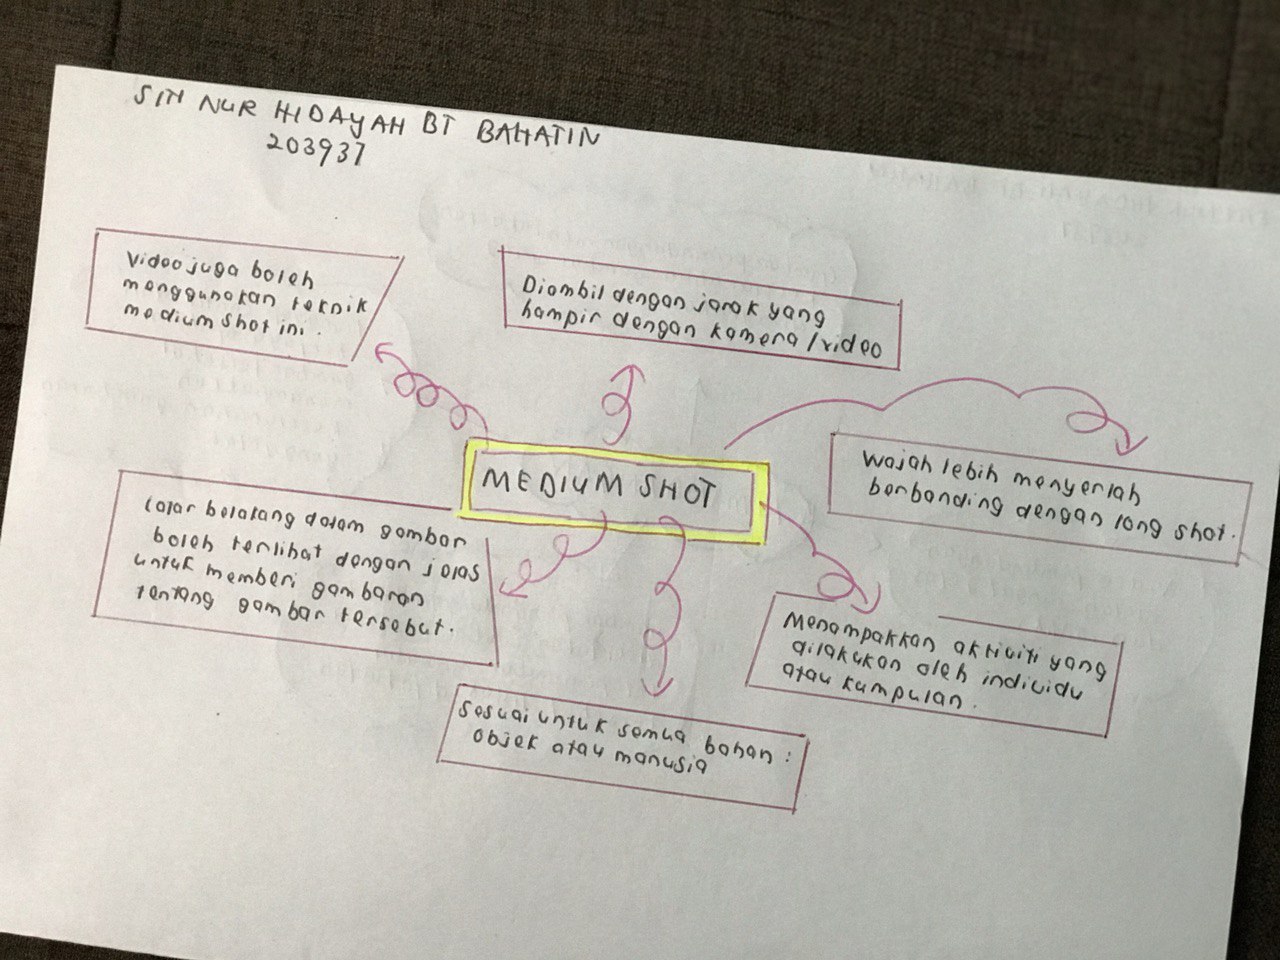 SITI NUR HIDAYAH BT BAHATIN
203937
Video juga boleh
menggunakan teknik
medium shot ini.
Diambil dengan jarak yang
hampir dengan kamera/video
MEDIUM SHOT
Wajah lebih menyerlah
berbanding dengan long shot.
Latar belakang dalam gambar
boleh terlihat dengan jelas
untuk memberi gambaran
tentang gambar tersebut.
Menampakkan aktiviti yang
dilakukan oleh individu
atau kumpulan.
Sesuai untuk semua bahan :
objek atau manusia